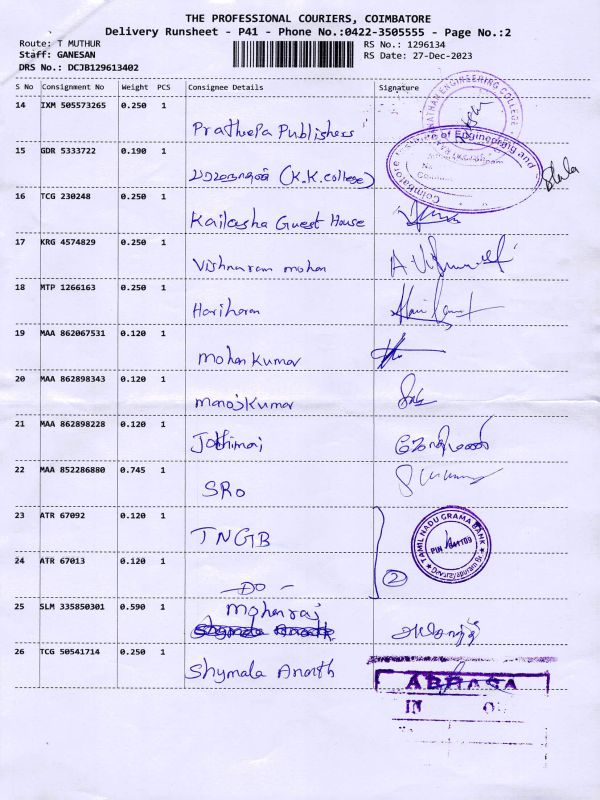 THE PROFESSIONAL COURIERS, COIMBATORE
Delivery Runsheet - P41 - Phone No.:0422-3505555 - Page No.:2
Route: T MUTHUR RS No.: 1296134
Staff: GANESAN RS Date: 27-Dec-2023
DRS No.: DCJB129613402
S No Consignment No Weight PCS Consignee Details Signature
14 IXM 505573265 0.250 1
Pratheepa Publishers
15 GDR 5333722 0.190 1
(K.K.college)
16 TCG 230248 0.250 1
Kailasha Guest House
17 KRG 4574829 0.250 1
Vishnuram mohan
18 MTP 1266163 0.250 1
Hariharan
19 MAA 862067531 0.120 1
Mohan Kumar
20 MAA 862898343 0.120 1
Manoj Kumar
21 MAA 862898228 0.120 1
Jothimai
22 MAA 852286880 0.745 1
SRO
23 ATR 67092 0.120 1
TNGB
TAMIL NADU GRAMA BANK
24 ATR 67013 0.120 1
-DO-
2
25 SLM 335850301 0.590 1
Mohanraj
Shymala Ananth
26 TCG 50541714 0.250 1
Shymala Ananth
ABHASA
IN